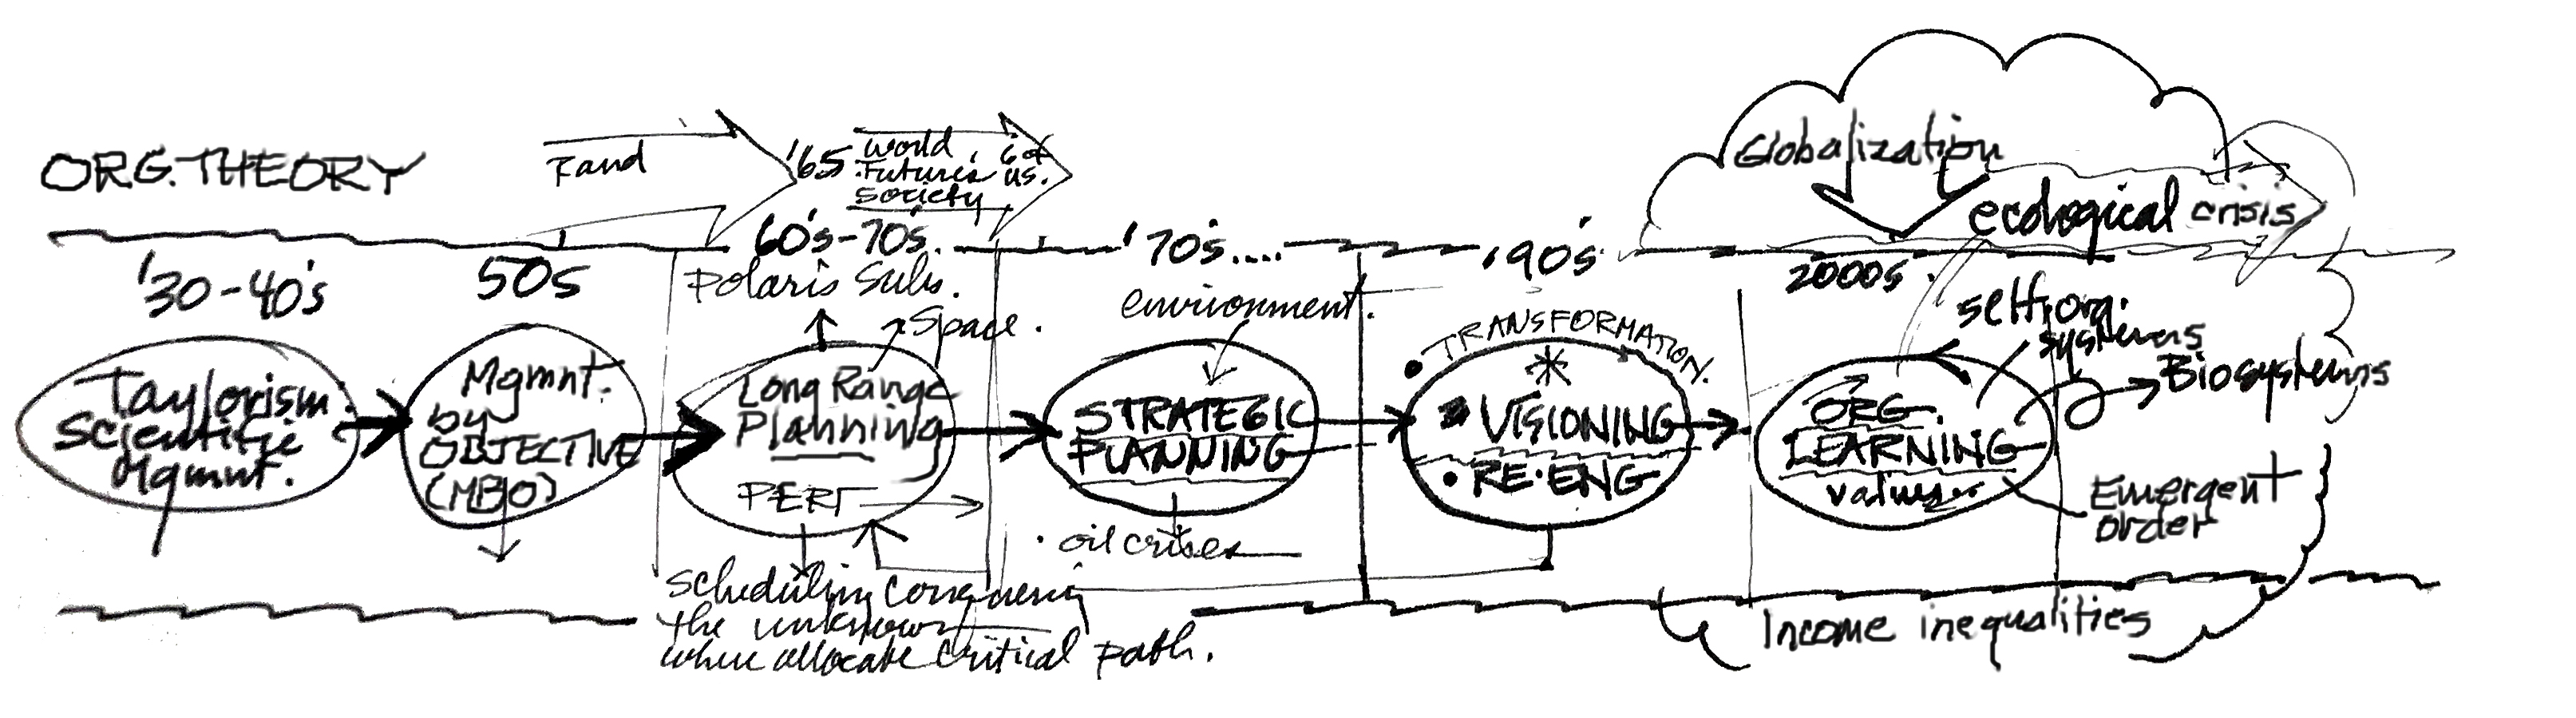 ORG. THEORY
Rand
'65 World
Futures
Society
US.
Globalization
ecological crisis
'30-40's
50s
60's-70's.
'70's....
'90's
2000s.
Polaris Subs.
Space.
environment.
TRANSFORMATION.
self.org.
systems
Biosystems
Taylorism.
Scientific
Mgmnt.
Mgmnt.
by
OBJECTIVE
(MBO)
Long Range
Planning
PERT
STRATEGIC
PLANNING
VISIONING
• RE•ENG
ORG.
LEARNING
values
Emergent
order
• oil crises
Scheduling
the unknown
where allocate critical path.
Income inequalities